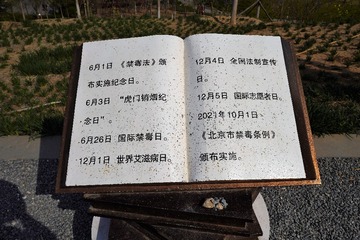 6月1日 《禁毒法》颁
布实施纪念日。
6月3日 “虎门销烟纪
念日”。
6月26日 国际禁毒日。
12月1日 世界艾滋病日。
12月4日 全国法制宣传
日。
12月5日 国际志愿者日。
2021年10月1日
《北京市禁毒条例》
颁布实施。